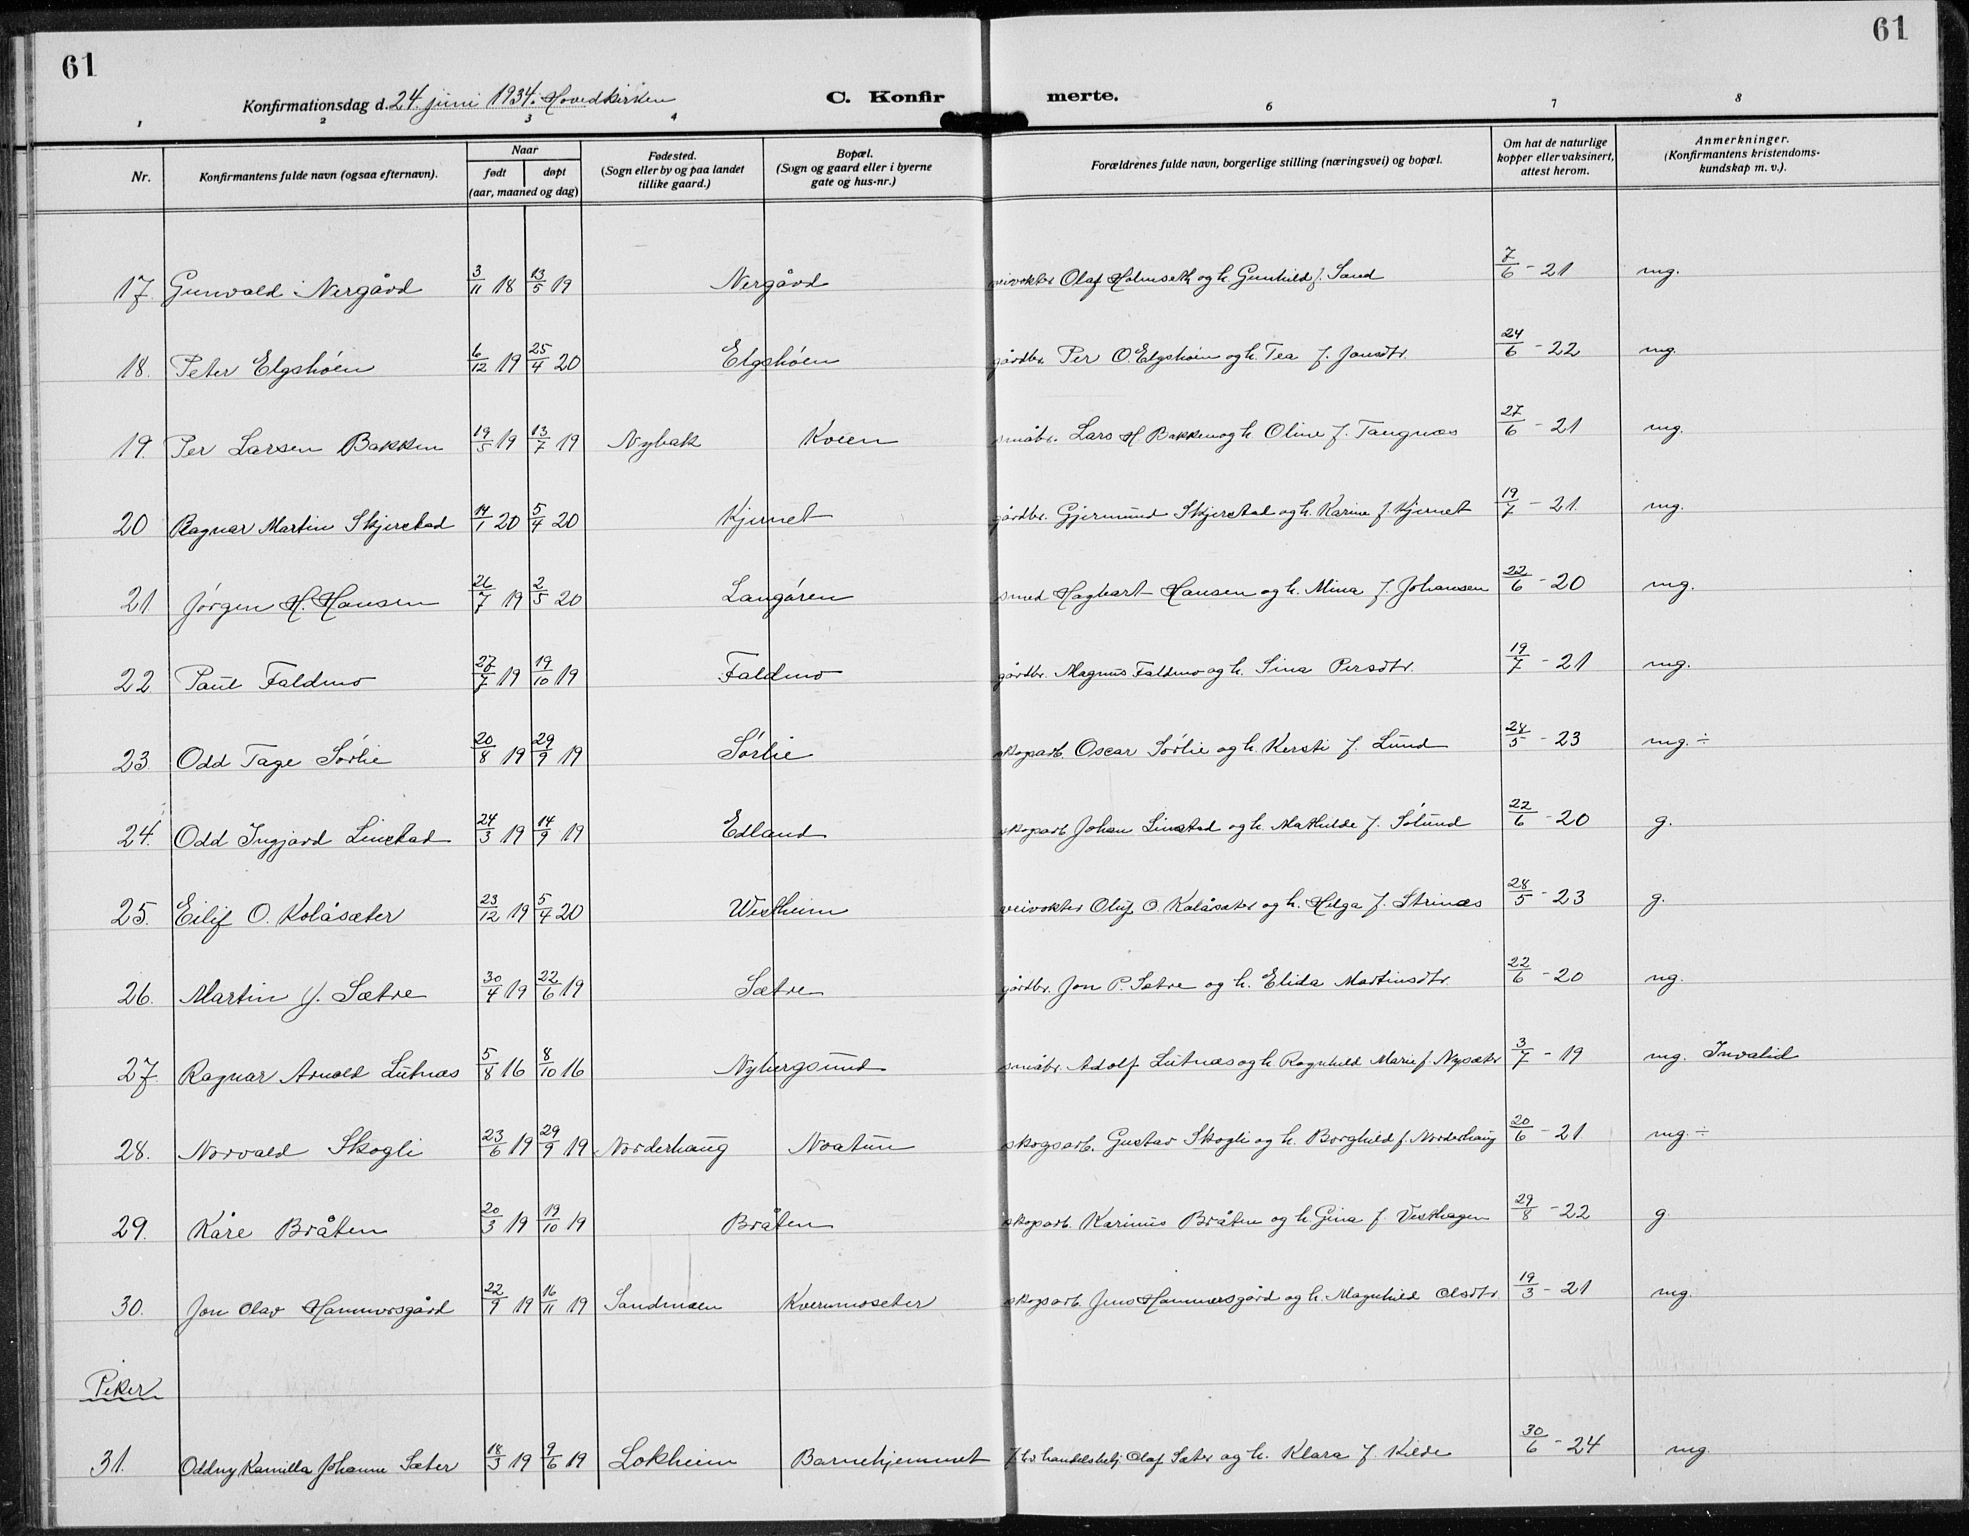 61
61
Konfirmationsdag d. 24. juni 1934. Hovedkirken
C. Konfir merte.
1 2 3 4 6 7 8
Nr.
Konfirmantens fulde navn (ogsaa efternavn).
Naar
født døpt
(aar, maaned og dag)
Fødested.
(Sogn eller by og paa landet
tillike gaard.)
Bopæl.
(Sogn og gaard eller i byerne
gate og hus-nr.)
Forældrenes fulde navn, borgerlige stilling (næringsvei) og bopæl.
Om hat de naturlige
kopper eller vaksinert,
attest herom.
Anmerkninger.
(Konfirmantens kristendoms-
kundskap m. v.).
17. Gunvald Nergård 3/11 18 13/5 19 Nergård veivokter Olaf Holmseth og h. Gunhild f. Sand 7/6 - 21 mg.
18. Peter Elgshöen 6/12 19 25/4 20 Elgshöen gårdbr. Per O. Elgshöen og h. Tea f. Jonsdtr. 24/6 - 22 mg.
19. Per Larsen Bakken 19/5 19 13/7 19 Nybak Koien småbr. Lars H. Bakken og h. Oline f. Tangnæs 27/6 - 21 mg.
20 Ragnar Martin Skjerstad 14/1 20 5/4 20 Kjernet gårdbr. Gjermund Skjerstad og h. Karine f. Kjernet 19/7 - 21. mg.
21 Jörgen H. Hansen 26/7 19 2/5 20 Langören smed Hagbart Hansen og h. Mina f. Johansen 22/6 - 20 mg.
22 Paul Faldmo 27/7 19 19/10 19 Faldmo gårdbr. Magnus Faldmo og h. Sina Persdtr. 19/7 - 21 mg.
23. Odd Tage Sörlie 20/8 19 29/9 19 Sörlie skogsarb. Oscar Sörlie og h. Kersti f. Lund 28/5 - 23 mg. ÷
24. Odd Ingjard Linstad 24/3 19 14/9 19 Edland skogsarb. Johan Linstad og h. Mathilde f. Sölund 22/6 - 20 g.
25. Eilif O. Kolåsæter 23/12 19 5/4 20 Westheim veivokter Oluf O. Kolåsæter og h. Helga f. Strinæs 28/5 - 23 g.
26. Martin J. Sætre 30/4 19 22/6 19 Sætre gårdbr. Jon P. Sætre og h. Elida Martinsdtr. 22/6 - 20 ng.
27 Ragnar Arnold Lutnæs 5/8 16 8/10 16 Nybergsund småbr. Adolf Lutnæs og h. Ragnhild Marie f. Nysæter 3/7 - 19 mg. Invalid
28. Norvald Skogli 23/6 19 29/9 19 Norderhaug Noatun skogsarb. Gustav Skogli og h. Borghild f. Norderhaug 20/6 - 21 mg. ÷
29. Kåre Bråten 20/3 19 19/10 19 Bråten skogsarb. Karinus Bråten og h. Gina f. Vesthagen 29/8 - 22 g.
30. Jon Olav Hammersgård 22/9 19 16/11 19 Sandmoen Kvernmoseter skogsarb. Jens Hammersgård og h. Magnhild Olsdtr. 19/3 - 21 mg.
Piker
31. Oddny Kamilla Johanne Sæter 18/3 19 9/6 19 Lokheim Barnehjemmet handelsbetj. Olaf Sæter og h. Klara f. Kilde 30/6 - 24 mg.